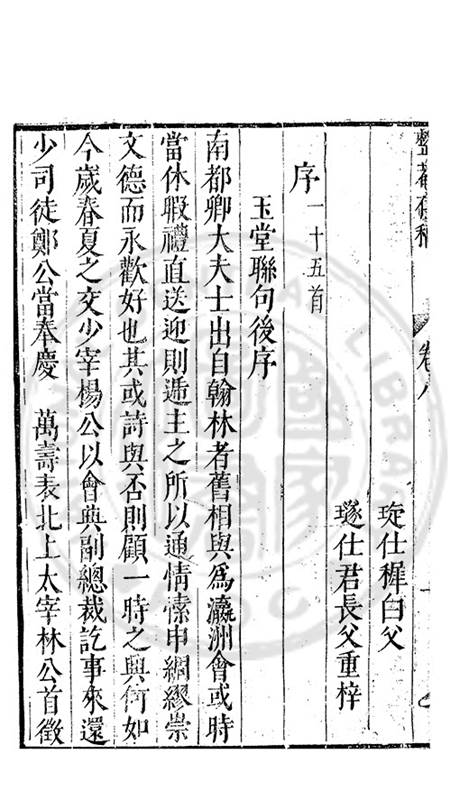 整菴存稿 卷八
珽仕穉白父
璲仕君長父重梓
序一十五首
玉堂聯句後序
南都卿大夫士出自翰林者舊相與爲瀛洲會或時
當休暇禮直送迎則遞主之所以通情愫申綢繆崇
文德而永歡好也其或詩與否則顧一時之興何如
今歲春夏之交少宰楊公以會典副總裁訖事來還
少司徒鄭公當奉慶 萬壽表北上太宰林公首徵